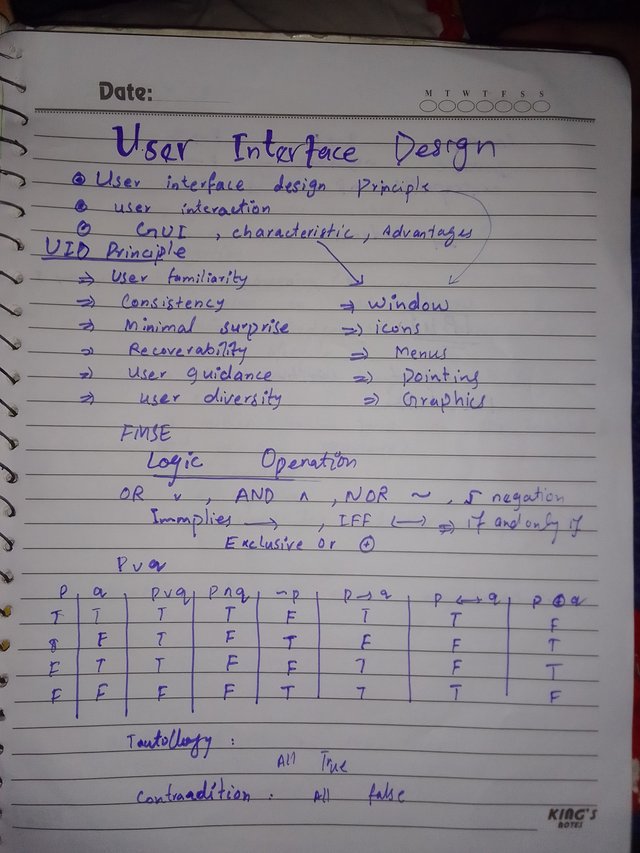 Date:
M T W T F S S
User Interface Design
User interface design Principle
user interaction
GUI , characteristic , Advantages
UID Principle
⇒ User familiarity
⇒ Consistency ⇒ window
⇒ Minimal surprise ⇒ icons
⇒ Recoverability ⇒ Menus
⇒ User guidance ⇒ Pointing
⇒ user diversity ⇒ Graphics
FMSE
Logic Operation
OR ∨ , AND ∧ , NOR ~ , negation
Immplies → , IFF ↔ ⇒ if and only if
Exclusive or ⊕
P∨q
P q P∨q P∧q ~P P→q P↔q P⊕q
T T T T F T T F
T F T F T F F T
F T T F F T F T
F F F F T T T F
Tautology :
All True
Contraadition : All false
KING'S
NOTES